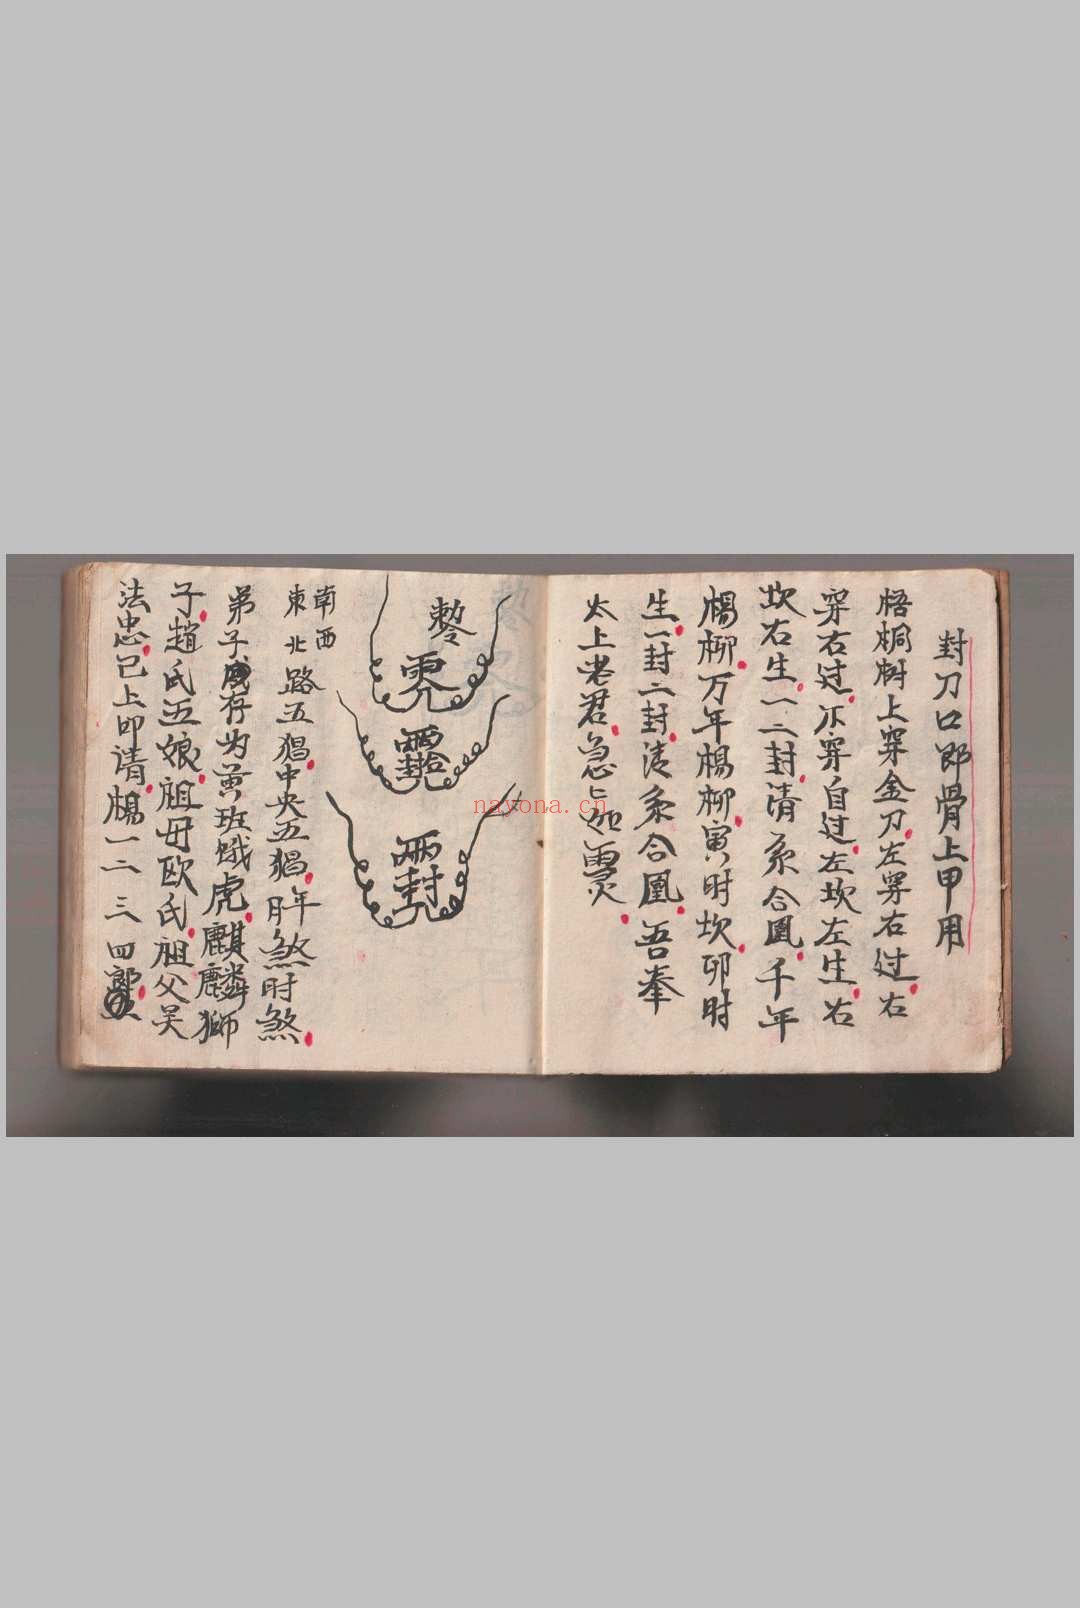 封刀口郎骨上甲用
梧桐树上穿金刀左穿右过右
穿右过不穿自过左坎左生右
坎右生一二封清糸合凰千年
楊柳万年楊柳寅时坎卯时
生一封二封清糸合凰吾奉
太上老君急
nayona.cn
南西
東北
路五猖中央五猖年月煞时煞
弟子存为黄班蛾虎麒麟獅
子趙氏五娘祖母欧氏祖父吴
法忠已上叩请楊一二三四郎